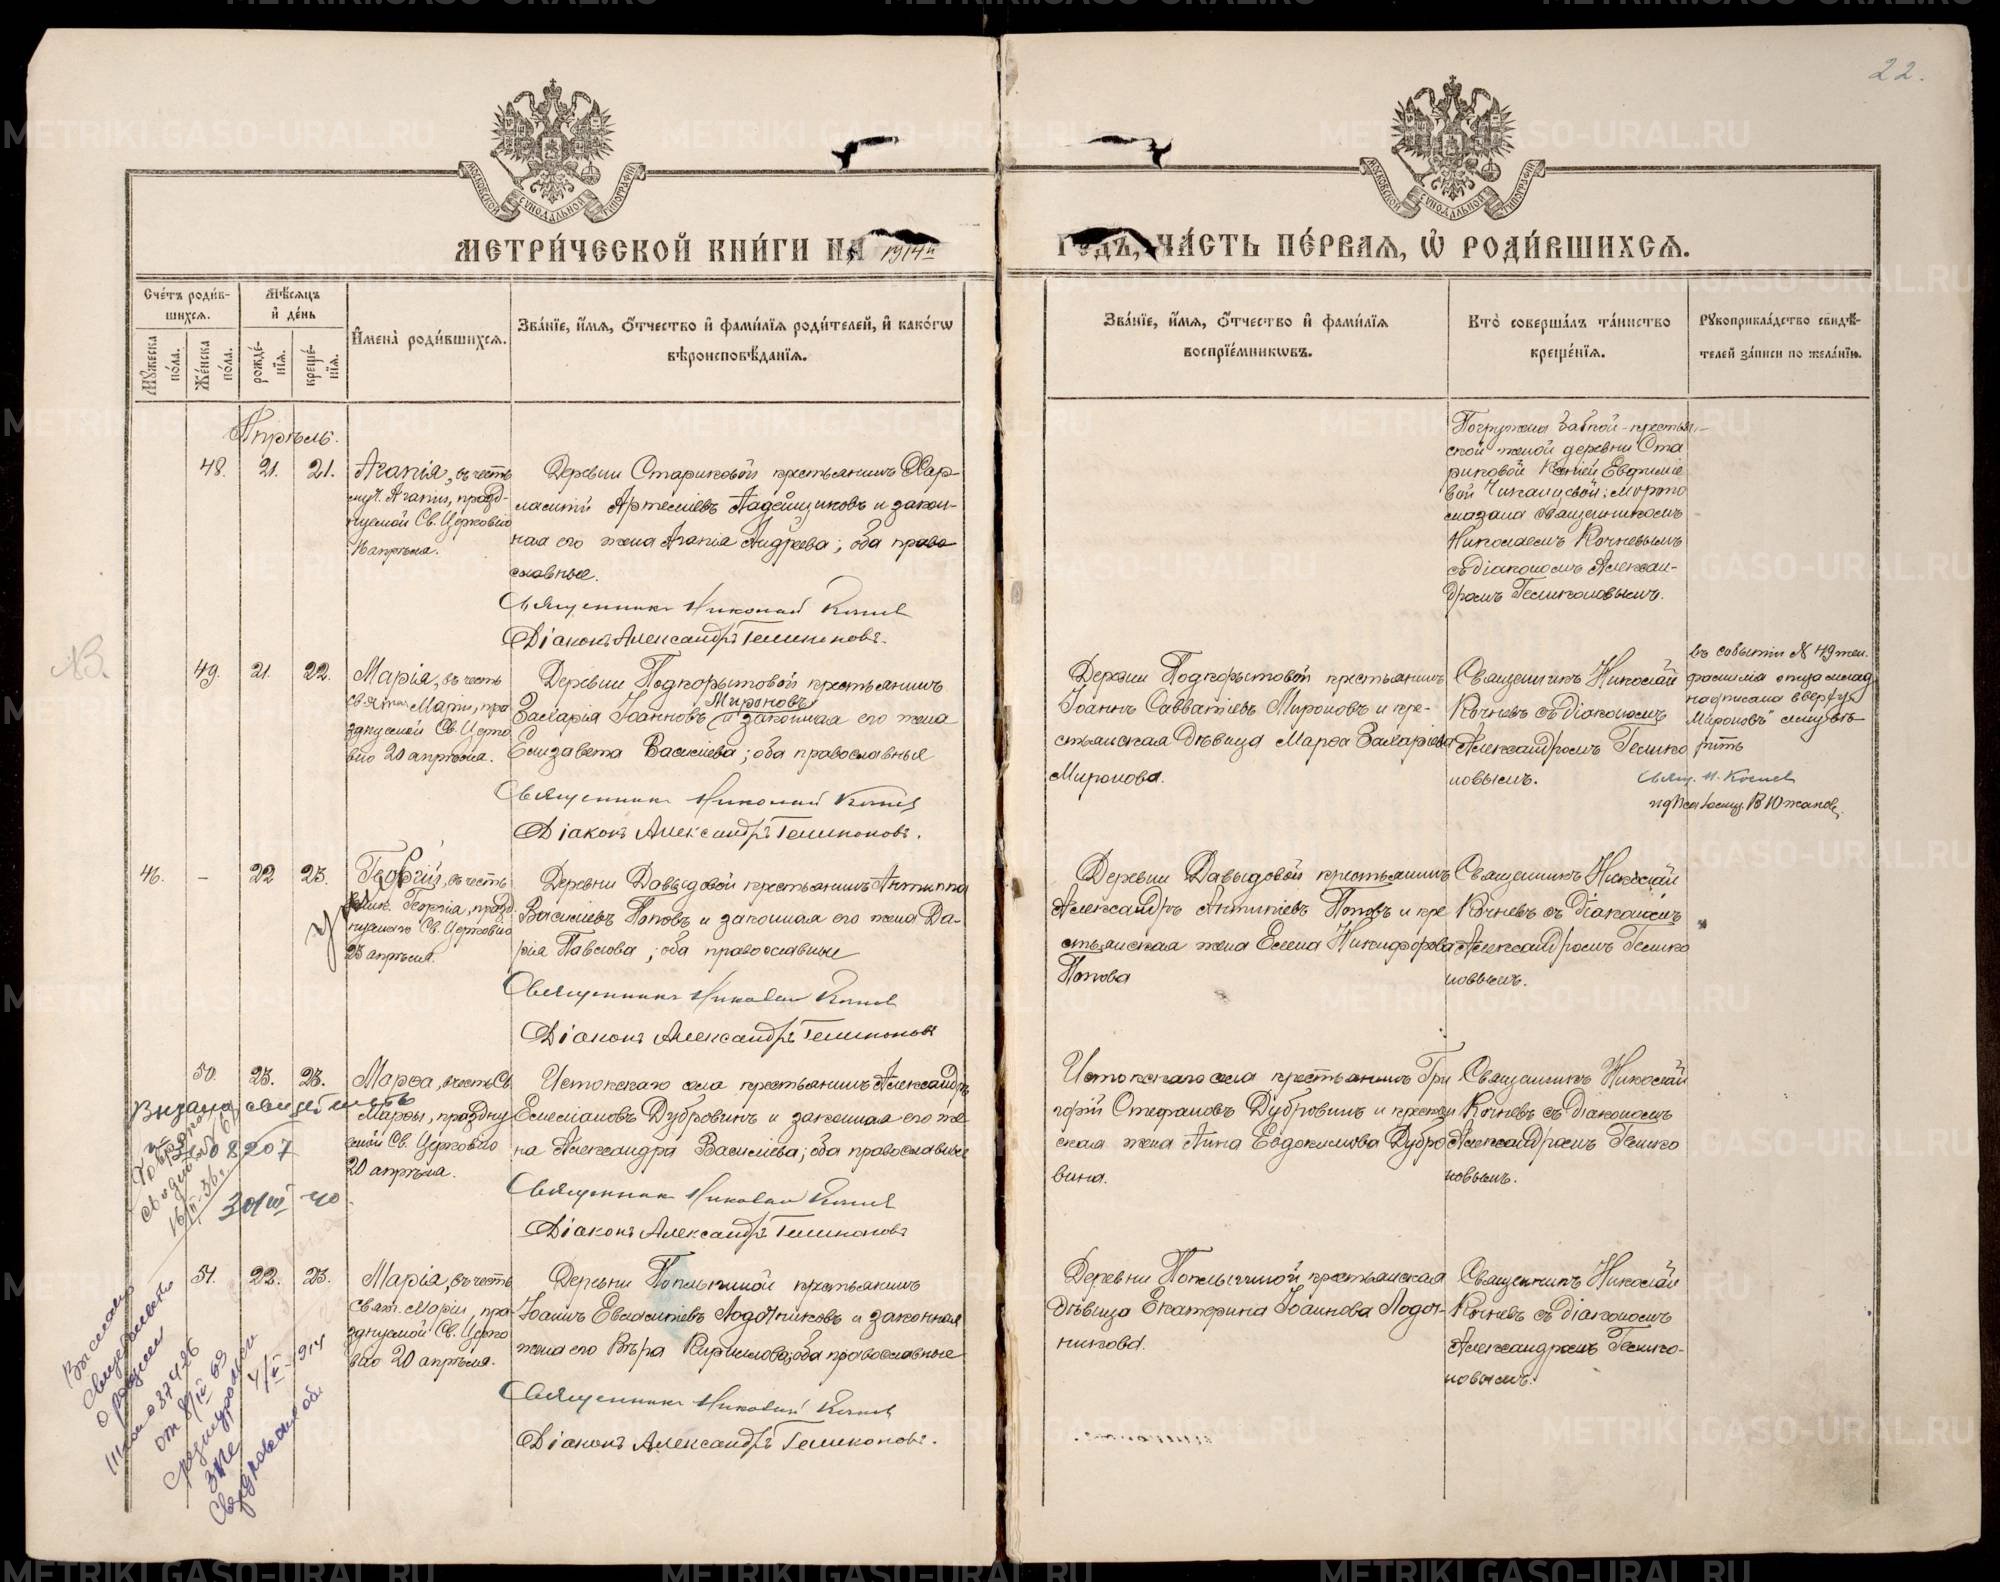 22.
МОСКОВСКОЙ СѴНОДАЛЬНОЙ ТИПОГРАФІИ
МОСКОВСКОЙ СѴНОДАЛЬНОЙ ТИПОГРАФІИ
МЕТРИ́ЧЕСКОЙ КНИ́ГИ НА 1914й
ГОДЪ, ЧА́СТЬ ПЕ́РВАЯ, Ѡ РОДИ́ВШИХСЯ.
Сче́тъ роди́в-
шихся.
Мѣ́сяцъ
и де́нь
Мужеска по́ла.
Же́нска по́ла.
рожде́нїя.
креще́нїя.
Имена̀ роди́вшихся.
Зва́нїе, и́мя, о́тчество и фами́лїя роди́телей, и како́гѡ
вѣроисповѣ́данїя.
Зва́нїе, и́мя, о́тчество и фами́лїя
воспрїе́мникѡвъ.
Кто̀ соверша́лъ та́инство
креще́нїя.
Рукоприкла́дство свидѣ́-
телей за́писи по жела́нїю.
Апрѣль.
48. 21. 21.
Агапія, въ честь
муч. Агапіи, празд-
нуемой Св. Церковію
16 апрѣля.
Деревни Стариковой крестьянинъ Хар-
лампій Артеміевъ Ладейщиковъ и закон-
ная его жена Агапія Андреева; оба право
славные.
Священникъ Николай Кочнев
Діаконъ Александръ Геликоновъ.
Погружена бабкой-крестьян-
ской женой деревни Ста
риковой Ксеніей Евфиміе
вой Чикалцевой; мѵропо
мазана священникомъ
Николаемъ Кочневымъ
съ діакономъ Алексан-
дромъ Геликоновымъ.
49. 21. 22.
Марія, въ честь
Св. Маріи, пра
зднуемой Св. Церко
вію 20 апрѣля.
Деревни Подкорытовой крестьянинъ
Мироновъ
Захарія Іоанновъ и законная его жена
Елизавета Василіева; оба православные
Священникъ Николай Кочнев
Діаконъ Александръ Геликоновъ.
Деревни Подкорытовой крестьянинъ
Іоаннъ Савватіевъ Мироновъ и кре-
стьянская дѣвица Марѳа Захаріева
Миронова.
Священникъ Николай
Кочневъ съ діакономъ
Александромъ Гелико
новымъ.
въ событіи № 49 жен.
фамилія отца млад
надписана вверху
"Мироновъ" ему вѣ
рить
Свящ. Н. Кочнев
46. - 22 23.
Георгій, въ честь
Георгія, празд
нуемаго Св. Церковію
23 апрѣля.
Деревни Давыдовой крестьянинъ Антиппа
Василіевъ Поповъ и законная его жена Да-
рія Павлова; оба православные
Священникъ Николай Кочнев
Діаконъ Александръ Геликоновъ
Деревни Давыдовой крестьянинъ
Александръ Антипіевъ Поповъ и кре
стьянская жена Елена Никифорова
Попова
Священникъ Николай
Кочневъ съ діакономъ
Александромъ Гелико
новымъ.
50. 23. 23.
Марѳа, въ честь Св.
Марѳы, праздну
емой Св. Церковію
20 апрѣля.
Истокскаго села крестьянинъ Александръ
Емеліановъ Дубровинъ и законная его же-
на Александра Василіева; оба православные
Священникъ Николай Кочнев
Діаконъ Александръ Геликоновъ
Истокскаго села крестьянинъ Гри
горій Стефановъ Дубровинъ и крестьян
ская жена Анна Евдокимова Дубро
вина.
Священникъ Николай
Кочневъ съ діакономъ
Александромъ Гелико
новымъ.
16/II-36г.
51. 22. 23.
Марія, въ честь
Свят. Маріи, пра-
зднуемой Св. Церко
вію 20 апрѣля.
Деревни Попелыгиной крестьянинъ
Іоаннъ Евсигніевъ Лодочниковъ и законная
жена его Вѣра Кириллова; оба православные
Священникъ Николай Кочнев
Діаконъ Александръ Геликоновъ.
Деревни Попелыгиной крестьянская
дѣвица Екатерина Іоаннова Лодоч-
никова.
Священникъ Николай
Кочневъ съ діакономъ
Александромъ Гелико-
новымъ.
Выслано
свидетельство
о рождении
от 8/IV 69
Свердловской обл
METRIKI.GASO-URAL.RU